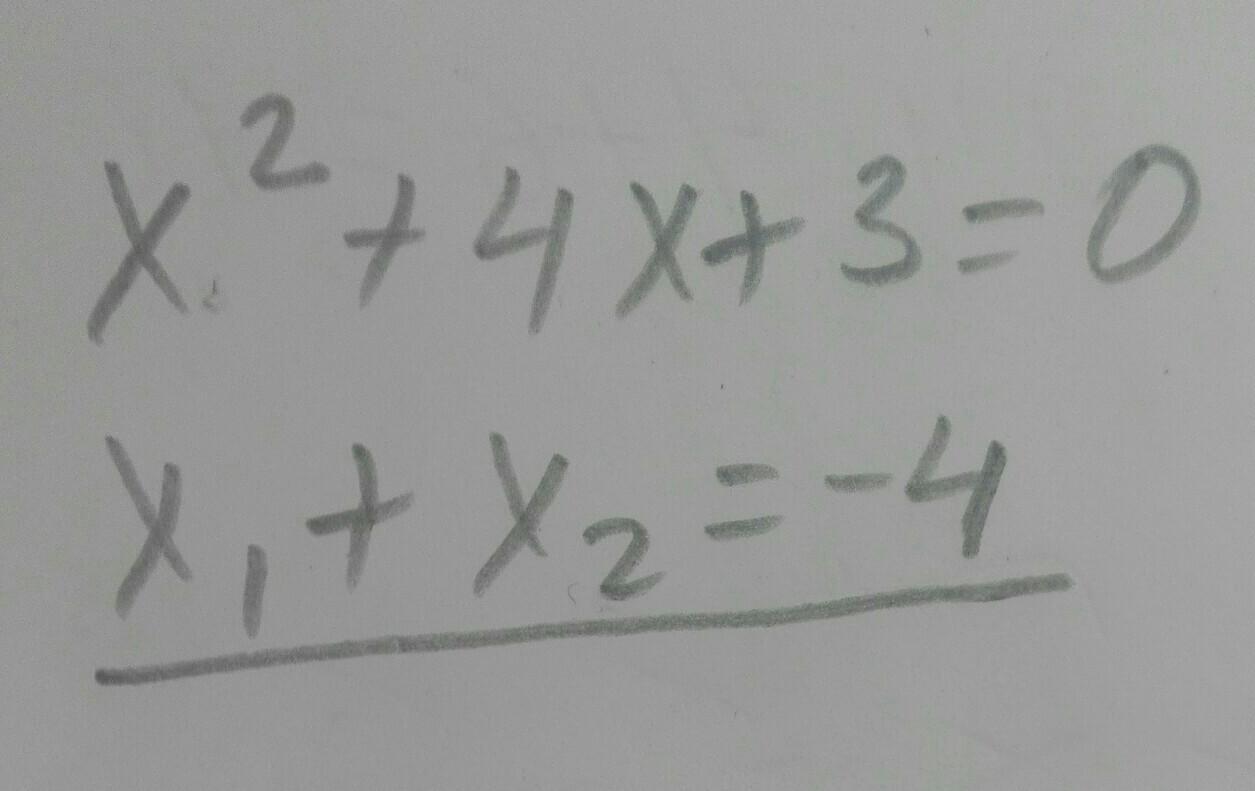 x² + 4x + 3 = 0
x₁ + x₂ = -4